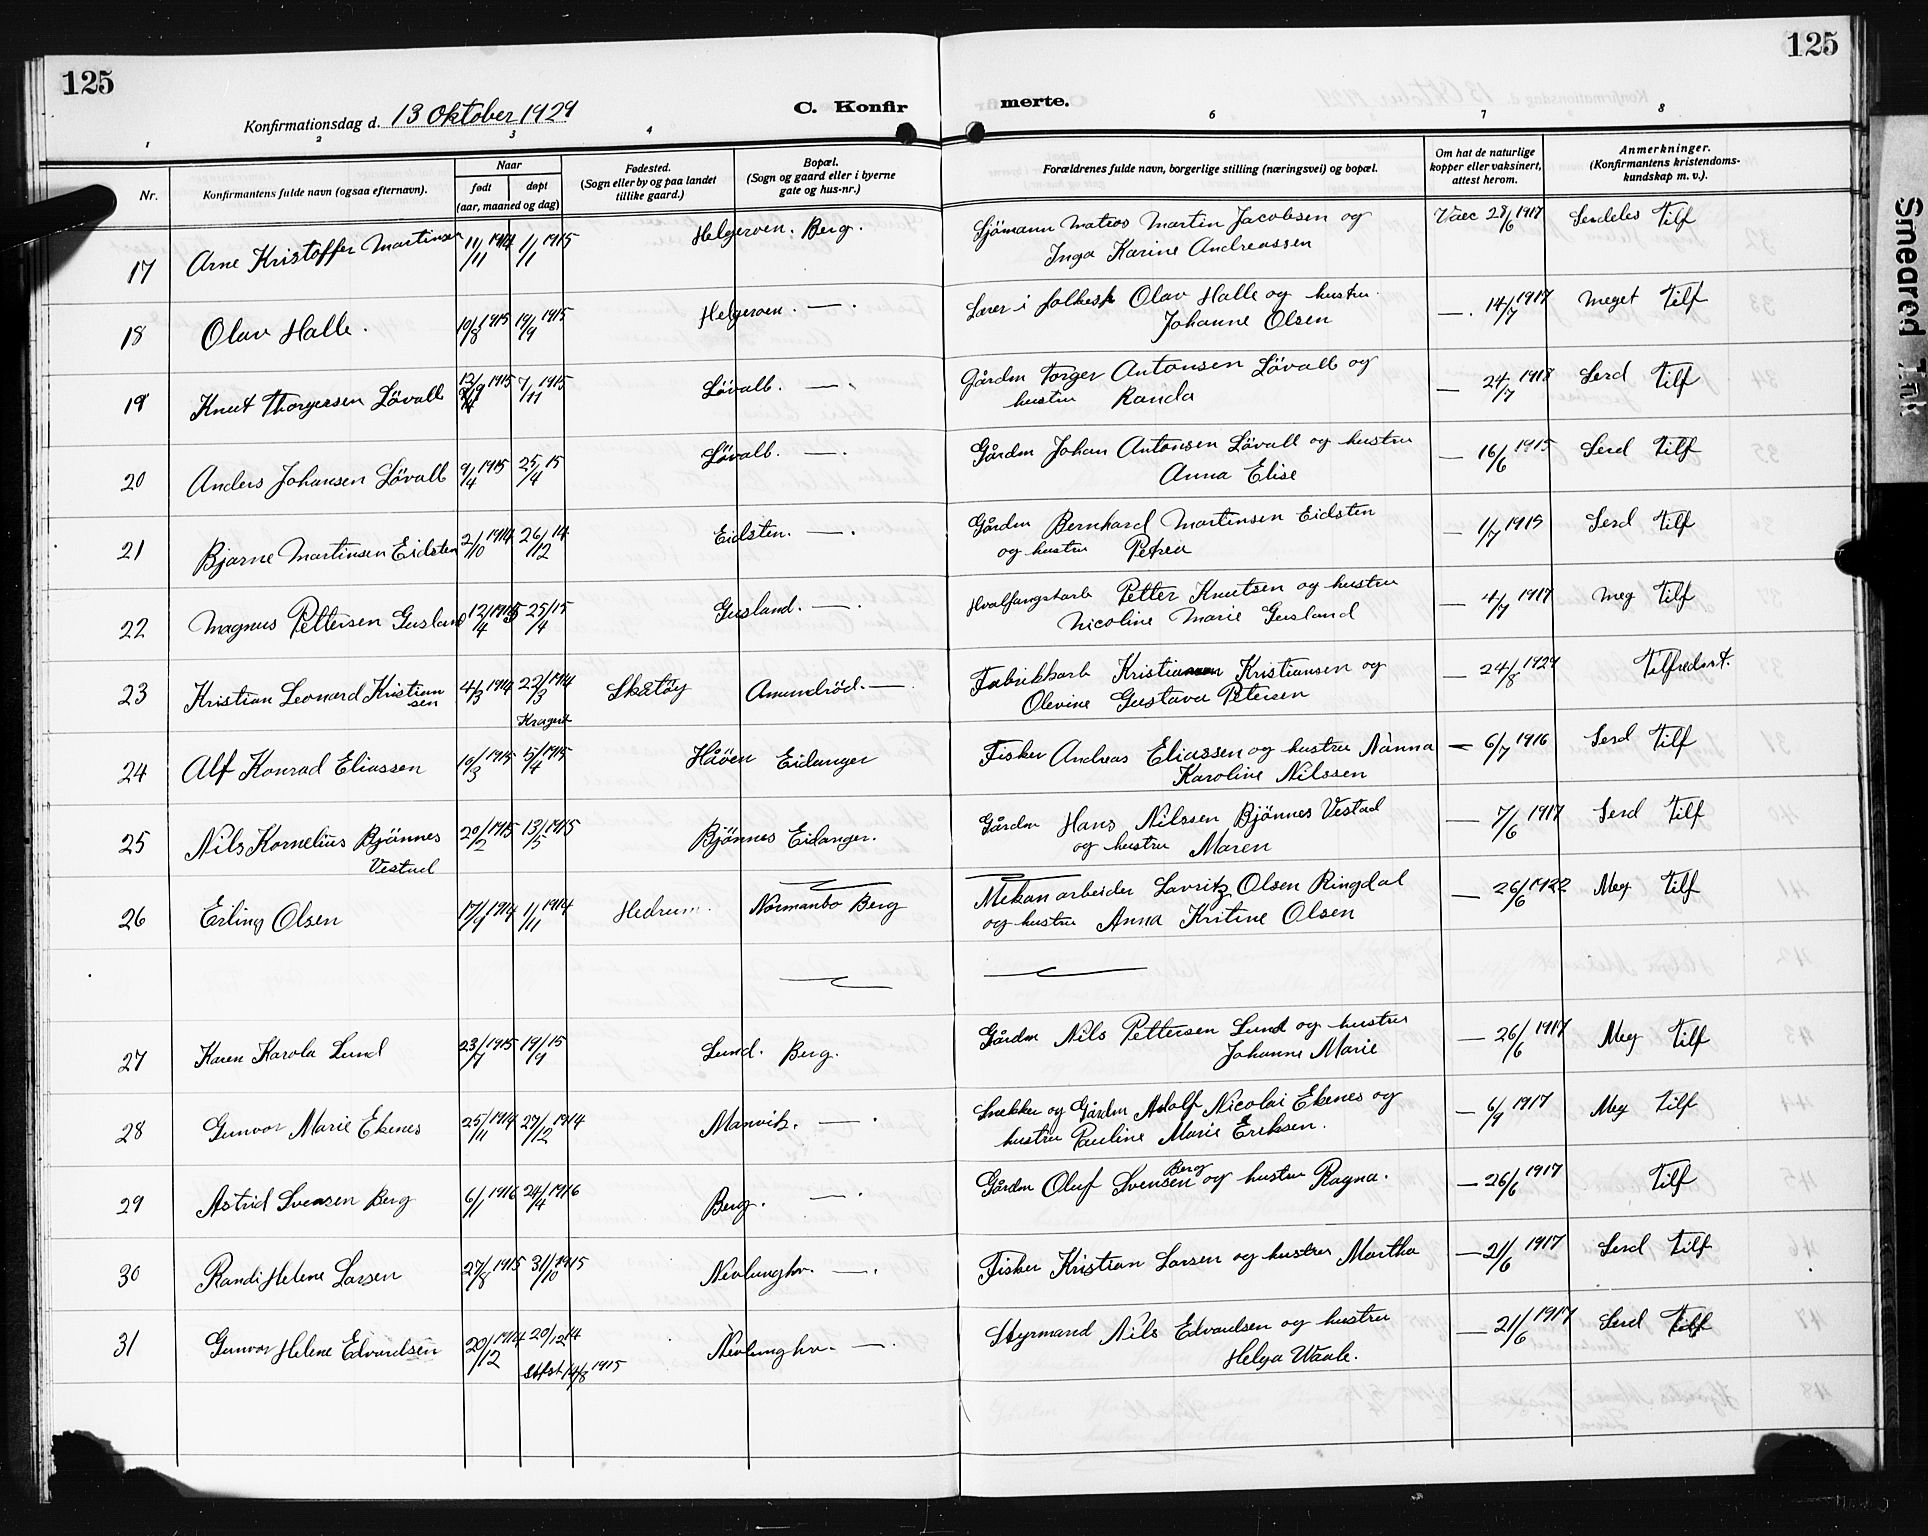 125
125
Konfirmationsdag d. 13 Oktober 1929
C. Konfirmerte.
1 2 3 4 6 7 8
Nr.
Konfirmantens fulde navn (ogsaa efternavn).
Naar
født
døpt
(aar, maaned og dag)
Fødested.
(Sogn eller by og paa landet
tillike gaard.)
Bopæl.
(Sogn og gaard eller i byerne
gate og hus-nr.)
Forældrenes fulde navn, borgerlige stilling (næringsvei) og bopæl.
Om hat de naturlige
kopper eller vaksinert,
attest herom.
Anmerkninger.
(Konfirmantens kristendoms-
kundskap m. v.).
17 Arne Kristoffer Martinsen 11/11 1914 1/1 1915 Helgeroen. Berg. Sjömann Matros Martin Jacobsen og Vacc 28/6 1917 Serdeles Tilf
Inga Karine Andreassen
18 Olav Halle. 10/8 1915 19/9 1915 Helgeroen — . Lærer i folkesk Olav Halle og hustru —. 14/7 1917 Meget Tilf
Johanne Olsen
19 Knut Thorgersen Lövall 12/9 1915 7/11 1915 Lövall. — . Gårdm Torger Antonsen Lövall og — 24/7 1918 Serd Tilf
hustru Randa
20 Anders Johansen Lövall 9/4 1915 25/4 15 Lövall. — . Gårdm Johan Antonsen Lövall og hustru — 16/6 1915 Serd Tilf
Anna Elise
21 Bjarne Martinsen Eidsten 2/10 1914 26/12 14 Eidsten. — . Gårdm Bernhard Martinsen Eidsten — 1/7 1915 Serd Tilf
og hustru Petrea
22 Magnus Pettersen Gusland 12/4 1915 25/4 15 Gusland. — . Hvalfangstarb Petter Knutsen og hustru — 4/7 1917 Meg Tilf
Nicoline Marie Gusland
23 Kristian Leonard Kristian 4/3 1914 22/3 1914 Skåtöy Amundröd. — . Fabrikkarb Kristian Kristiansen og — 24/8 1929 Tilfredsst.
sen Kragerö Olevine Gustava Petersen
24 Alf Konrad Eliassen 10/3 1915 5/4 1915 Håöen Eidanger Fisker Andreas Eliassen og hustru Nanna — 6/7 1916 Serd Tilf
Karoline Nilssen
25 Nils Kornelius Bjönnes 20/2 1915 13/5 1915 Bjönnes Eidanger. Gårdm Hans Nilssen Bjönnes Vestad — 7/6 1917 Serd Tilf
Vestad og hustru Maren
26 Erling Olsen 17/7 1914 1/11 1914 Hedrum. Normanbo Berg Mekan arbeider Lavritz Olsen Ringdal — 26/6 1922 Meg Tilf
og hustru Anna Kristine Olsen
27 Karen Karola Lund 23/7 1915 19/9 15 Lund. Berg. Gårdm Nils Pettersen Lund og hustru — 26/6 1917 Meg Tilf
Johanne Marie
28 Gunvor Marie Ekenes 25/11 1914 27/12 1914 Manvik. — . Snekker og Gårdm Adolf Nicolai Ekenes og — 6/9 1917 Meg Tilf
hustru Pauline Marie Eriksen.
29 Astrid Svensen Berg 6/1 1916 24/4 1916 Berg. — . Gårdm Oluf Svensen Berg og hustru Ragna. — 26/6 1917 Tilf
30 Randi Helene Larsen 27/8 1915 31/10 1915 Nevlunghv. — . Fisker Kristian Larsen og hustru Martha — 21/6 1917 Serd Tilf
31 Gunvor Helene Edvardsen 20/12 1914 20/12 14 Nevlunghv. — . Styrmand Nils Edvardsen og hustru — 21/6 1917 Serd Tilf
Stfst 14/8 1915 Helga Waale.
Smeared Ink